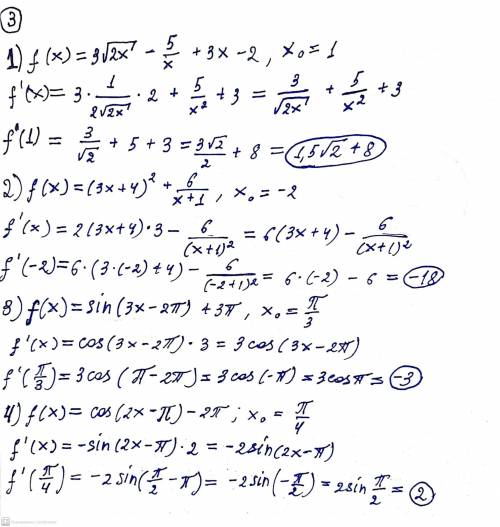 ③
1) f(x) = 3√2x - 5/x + 3x - 2, x₀ = 1
f'(x) = 3 · 1/(2√2x) · 2 + 5/x² + 3 = 3/√2x + 5/x² + 3
f'(1) = 3/√2 + 5 + 3 = 3√2/2 + 8 = 1,5√2 + 8
2) f(x) = (3x+4)² + 6/(x+1), x₀ = -2
f'(x) = 2(3x+4)·3 - 6/(x+1)² = 6(3x+4) - 6/(x+1)²
f'(-2) = 6·(3·(-2)+4) - 6/(-2+1)² = 6·(-2) - 6 = -18
3) f(x) = sin(3x-2π) + 3π, x₀ = π/3
f'(x) = cos(3x-2π)·3 = 3cos(3x-2π)
f'(π/3) = 3cos(π-2π) = 3cos(-π) = 3cosπ = -3
4) f(x) = cos(2x-π) - 2π; x₀ = π/4
f'(x) = -sin(2x-π)·2 = -2sin(2x-π)
f'(π/4) = -2sin(π/2 - π) = -2sin(-π/2) = 2sin π/2 = 2